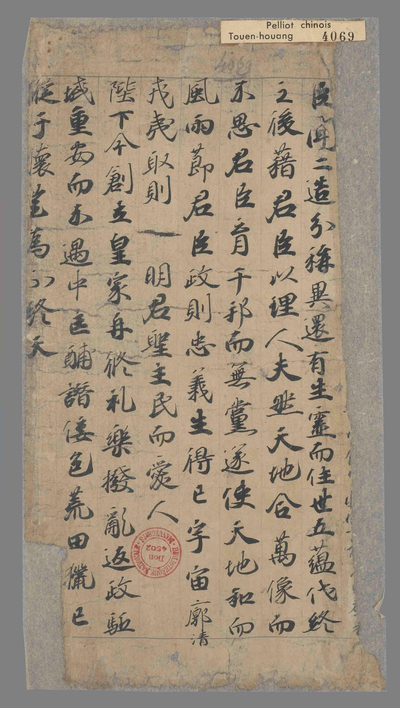 Pelliot chinois
Touen-houang 4069
4069
臣聞二造分稱異還有生靈而住世五蘊代終
立後藉君臣以理人夫坐天地合萬像而
不思君臣育千邦而無黨遂使天地和而
風雨節君臣政則忠義生得已宇宙廓清
戎夷取則 明君聖主民而愛人
陛下今創立皇家再修礼樂撥亂返政駈
域重安而不遇中臣酺諧倭色荒田獵已
縱于懷豈為不終天